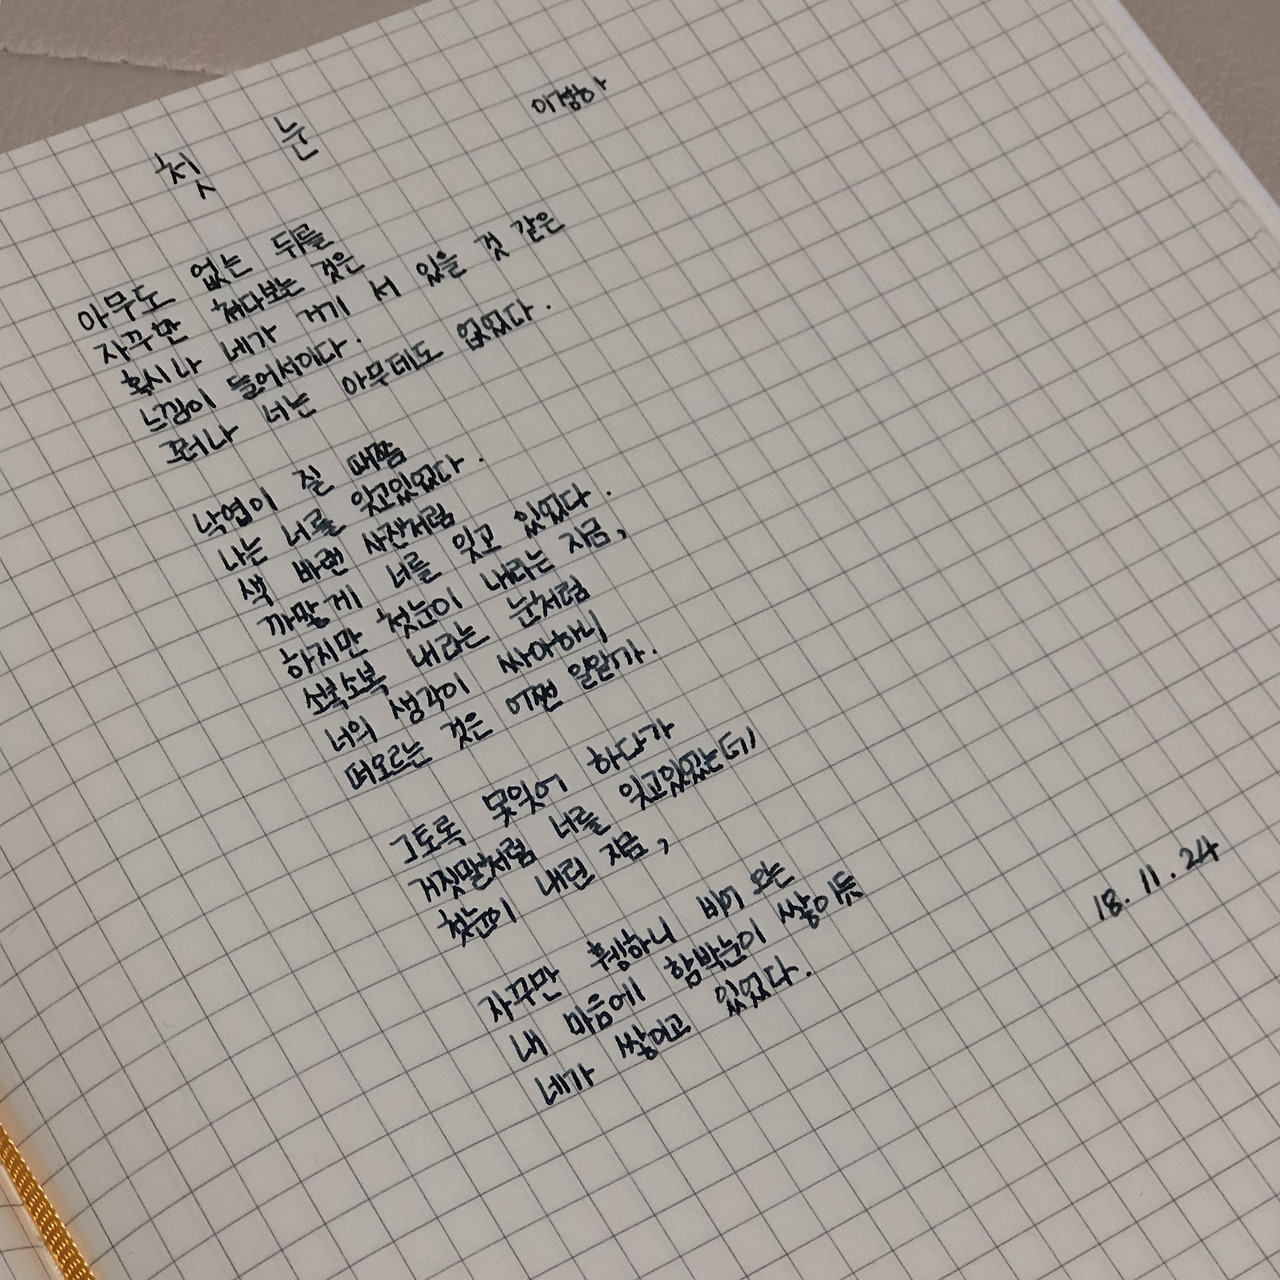 첫 눈
이정하
아무도 없는 뒤를
자꾸만 쳐다보는 것은
혹시나 네가 거기 서 있을 것 같은
느낌이 들어서이다.
그러나 너는 아무데도 없었다.
낙엽이 질 때쯤
나는 너를 잊고있었다.
색 바랜 사진처럼
까맣게 너를 잊고 있었다.
하지만 첫눈이 내리는 지금,
소복소복 내리는 눈처럼
너의 생각이 싸아하니
떠오르는 것은 어쩐 일일까.
그토록 못잊어 하다가
거짓말처럼 너를 잊고있었는데
첫눈이 내린 지금,
자꾸만 휑하니 비어 오는
내 마음에 함박눈이 쌓이듯
네가 쌓이고 있었다.
18. 11. 24